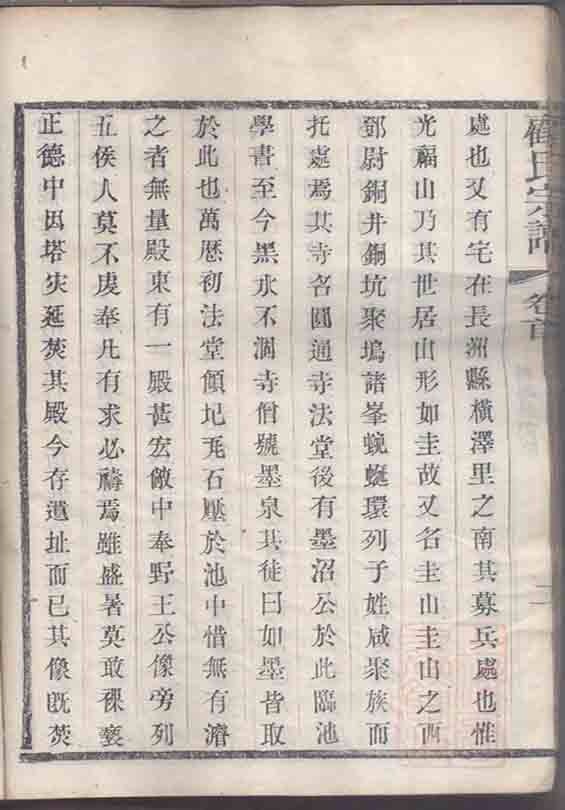 氏宗譜 卷首 二
處也又有宅在長洲縣橫澤里之南其募兵處也惟
光福山乃其世居山形如圭故又名圭山圭山之西
鄧尉銅井銅坑聚塢諸峯蜿蜒環列子姓咸聚族而
托處焉其寺名圓通寺法堂後有墨沼公於此臨池
學書至今黑水不涸寺僧號墨泉其徒曰如墨皆取
於此也萬歷初法堂傾圮瓦石壓於池中惜無有濬
之者無量殿東有一殿甚宏敞中奉野王公像旁列
五侯人莫不虔奉凡有求必禱焉雖盛暑莫敢裸褻
正德中因塔灾延焚其殿今存遺址而已其像旣焚